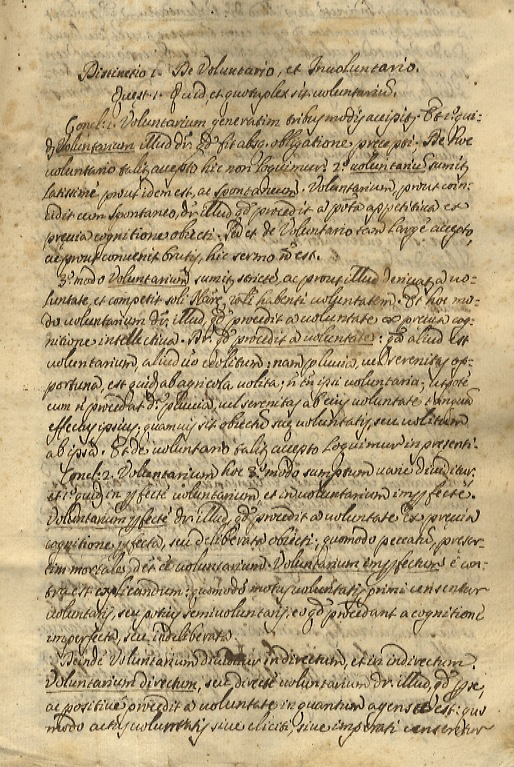 Distinctio 1. De Voluntario, et Involuntario.
Quest. 1. Quid, et quotuplex sit voluntariũ.
Concl. 1. Voluntarium generatim tribus modis accipit.r Et 1.º qui-
dẽ Voluntarium illud dr. qd fit absq. obligatione precepti; De hoc
voluntario taliter accepto hic non loquimur. 2.º voluntariũ sumit.
latissime prout idem est, ac Spontaneum. Voluntarium, prout coin-
cidit cum Spontaneo, dr. illud qd procedit a pota appetitiva ex
previa cognitione obiecti. Sed et de Voluntario tam large accepto,
ac prout convenit brutis, hic sermo ñ est.
3.º modo Voluntariũ sumit. stricte, ac prout illud derivat. a vo-
luntate, et competit soli habenti voluntatem. Et hoc mo-
do voluntarium dr. illud, qd procedit a voluntate ex previa cog-
nitione intellectiva. Dr. qd procedit a voluntate: qa aliud est
voluntarium, aliud vo volitum; nam pluvia, vel serenitas op-
portuna, est quid ab agricola volitũ; ñ tñ ipsi voluntariũ; utpote
cum ñ procedat dr. pluvia, vel serenitas ab eius voluntate tanquã
effectus ipsius, quamvis sit obiectũ sue voluntatis, seu volitum
ab ipsa. Et de voluntario taliter accepto loquimur in presenti.
Concl. 2. Voluntarium hoc 3.º modo sumptum varie dividitur:
et 1.º quidẽ in pfecte voluntarium et in voluntarium impfecte.
Voluntarium pfecte dr. illud, qd procedit a voluntate ex previa
cognitione pfecta, seu deliberata obiecti; quomodo peccatũ, preser-
tim mortale, dr. eẽ voluntarium. Voluntarium impfectum e con-
tra est explicandum: quomodo motus voluntatis primi censentur
voluntarij, seu potius semivoluntarij, eo qd procedant a cognitione
imperfecta, seu indeliberata.
Deinde Voluntarium dividitur in directum, et in indirectum.
Voluntarium directum, seu directe voluntarium dr. illud, qd p se,
ac positive procedit a voluntate in quantum agens est: quo
modo actus voluntatis sive eliciti, sive imperati censentur